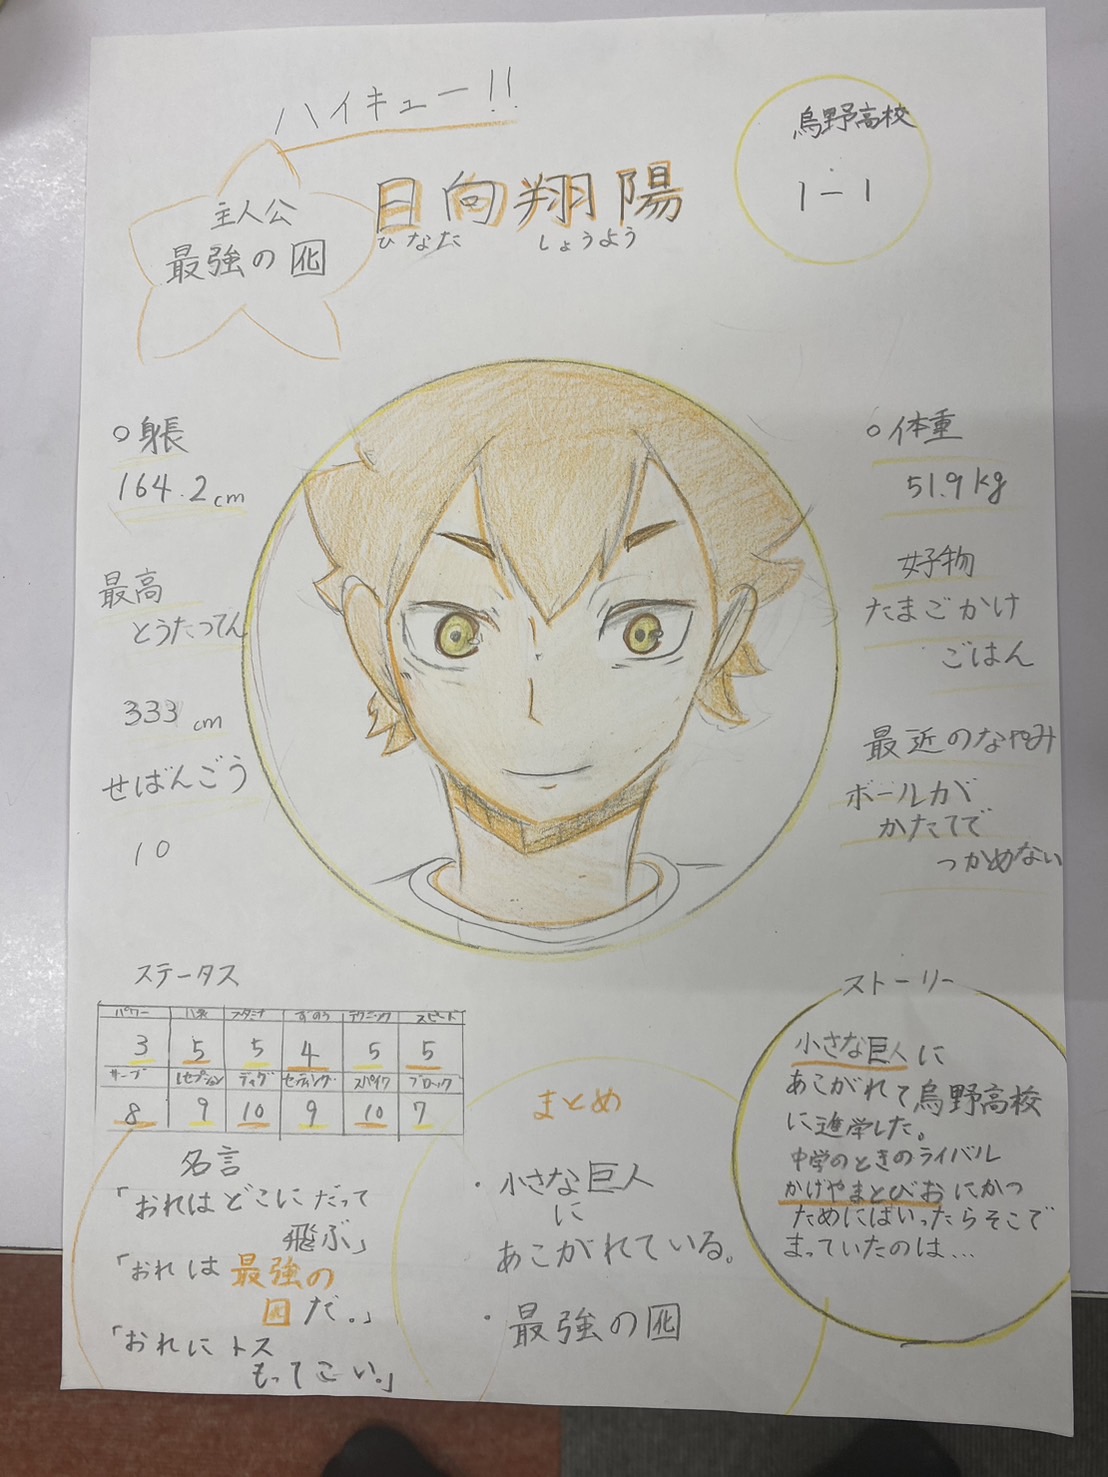 ハイキュー!!
烏野高校
1-1
主人公
最強の囮
日向翔陽
ひなた しょうよう
○身長
164.2cm
最高
とうたつてん
333cm
せばんごう
10
○体重
51.9kg
好物
たまごかけ
ごはん
最近のなやみ
ボールが
かたてで
つかめない
ステータス
パワー バネ スタミナ ずのう テクニック スピード
3 5 5 4 5 5
サーブ レセプション ディグ セッティング スパイク ブロック
8 9 10 9 10 7
名言
「おれはどこにだって
飛ぶ」
「おれは最強の
囮だ。」
「おれにトス
もってこい。」
まとめ
・小さな巨人
に
あこがれている。
・最強の囮
ストーリー
小さな巨人に
あこがれて烏野高校
に進学した。
中学のときのライバル
かげやまとびおにかつ
ためにはいったらそこで
まっていたのは...